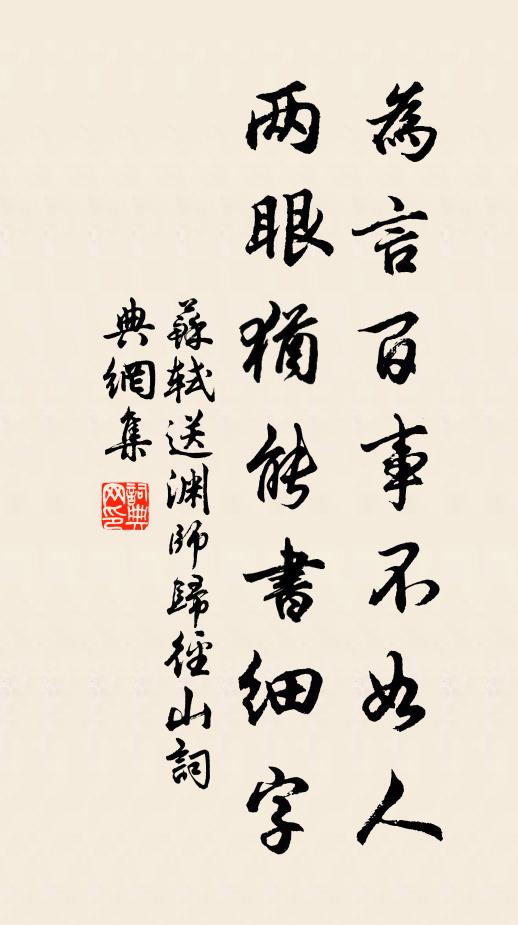 為言百事不如人
两眼猶能書細字
蘇軾送淵師歸徑山詞
典網集
詞典
网印